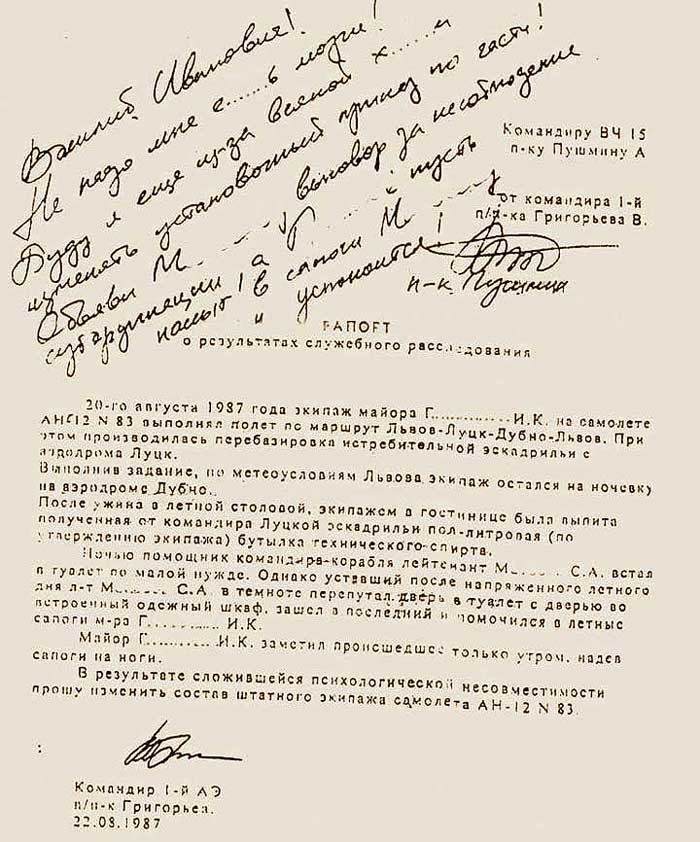 Василий Иванович!
Не надо мне е......ь мозги!
Буду я еще из-за всякой х......и
изменять установочный приказ по части!
Объяви М. выговор за несоблюдение
субординации, а Г. пусть
нассыт в сапоги М.
и успокоится!
п-к Пушмин
Командиру ВЧ 15
п-ку Пушмину А
от командира 1-й
п/п-ка Григорьева В.
РАПОРТ
о результатах служебного расследования
20-го августа 1987 года экипаж майора Г..............И.К. на самолете
АН-12 N 83 выполнял полет по маршрут Львов-Луцк-Дубно-Львов. При
этом производилась перебазировка истребительной эскадрильи с
аэродрома Луцк.
Выполнив задание, по метеоусловиям Львова экипаж остался на ночевку
на аэродроме Дубно.
После ужина в летной столовой, экипажем в гостинице была выпита
полученная от командира Луцкой эскадрильи пол-литровая (по
утверждению экипажа) бутылка технического спирта.
Ночью помощник командира-корабля лейтенант М........ С.А. встал
в туалет по малой нужде. Однако уставший после напряженного летного
дня л-т М........ С.А. в темноте перепутал дверь в туалет с дверью во
встроенный одежный шкаф, зашел в последний и помочился в летные
сапоги м-ра Г............ И.К.
Майор Г............И.К. заметил происшедшее только утром, надев
сапоги на ноги.
В результате сложившейся психологической несовместимости
прошу изменить состав штатного экипажа самолета АН-12 N 83.
Командир 1-й АЭ
п/п-к Григорьев.
22.08.1987